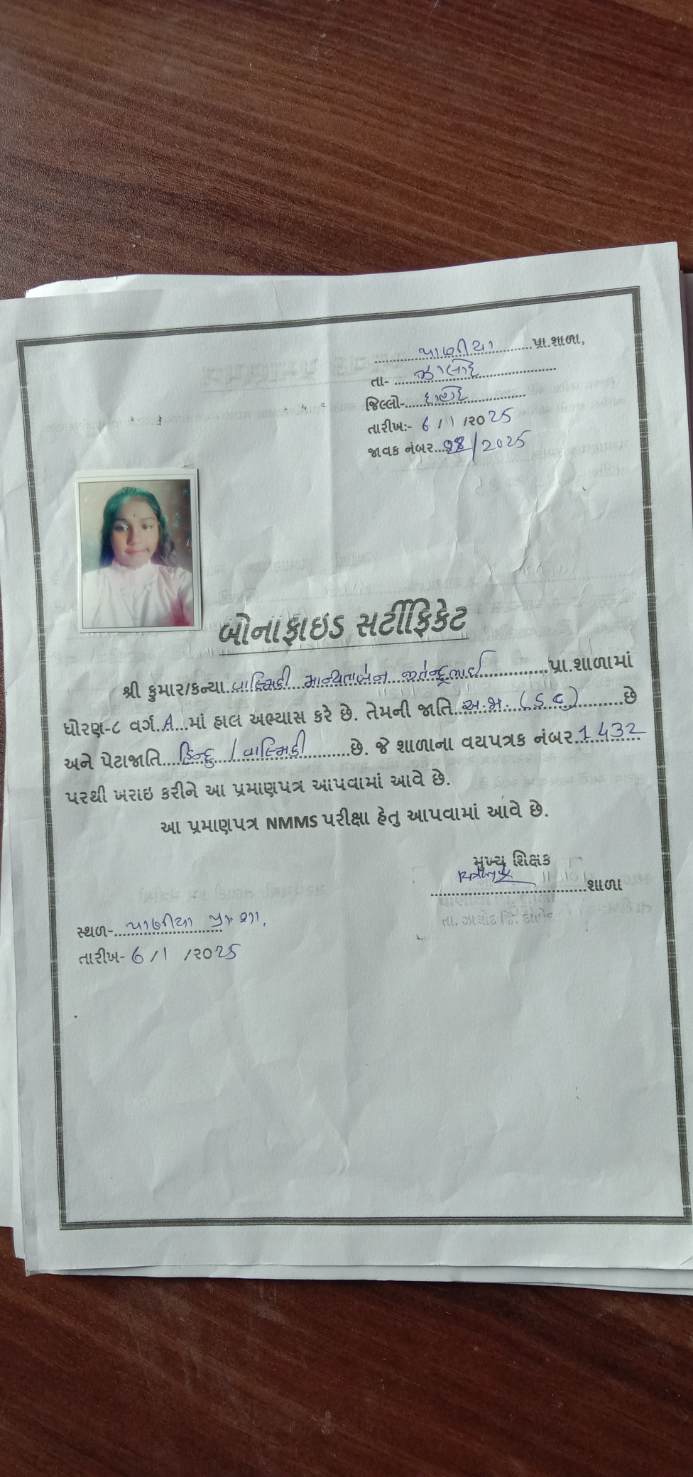 પાણીયા પ્રા.શાળા,
તા- ઝાલોદ
જિલ્લો- દાહોદ
તારીખ:- 6 / 1 /2025
જાવક નંબર...98/2025
બોનાફાઇડ સર્ટીફિકેટ
શ્રી કુમાર/કન્યા વાલ્મિકી માન્યતાબેન જીતેન્દ્રભાઈ પ્રા.શાળામાં
ધોરણ-૮ વર્ગ.A...માં હાલ અભ્યાસ કરે છે. તેમની જાતિ અ.જા. (S.C) છે
અને પેટાજાતિ હિન્દુ / વાલ્મિકી છે. જે શાળાના વયપત્રક નંબર 1432
પરથી ખરાઇ કરીને આ પ્રમાણપત્ર આપવામાં આવે છે.
આ પ્રમાણપત્ર NMMS પરીક્ષા હેતુ આપવામાં આવે છે.
મુખ્ય શિક્ષક
શાળા
સ્થળ- પાણીયા પ્રા. શા.
તારીખ- 6 / 1 /2025